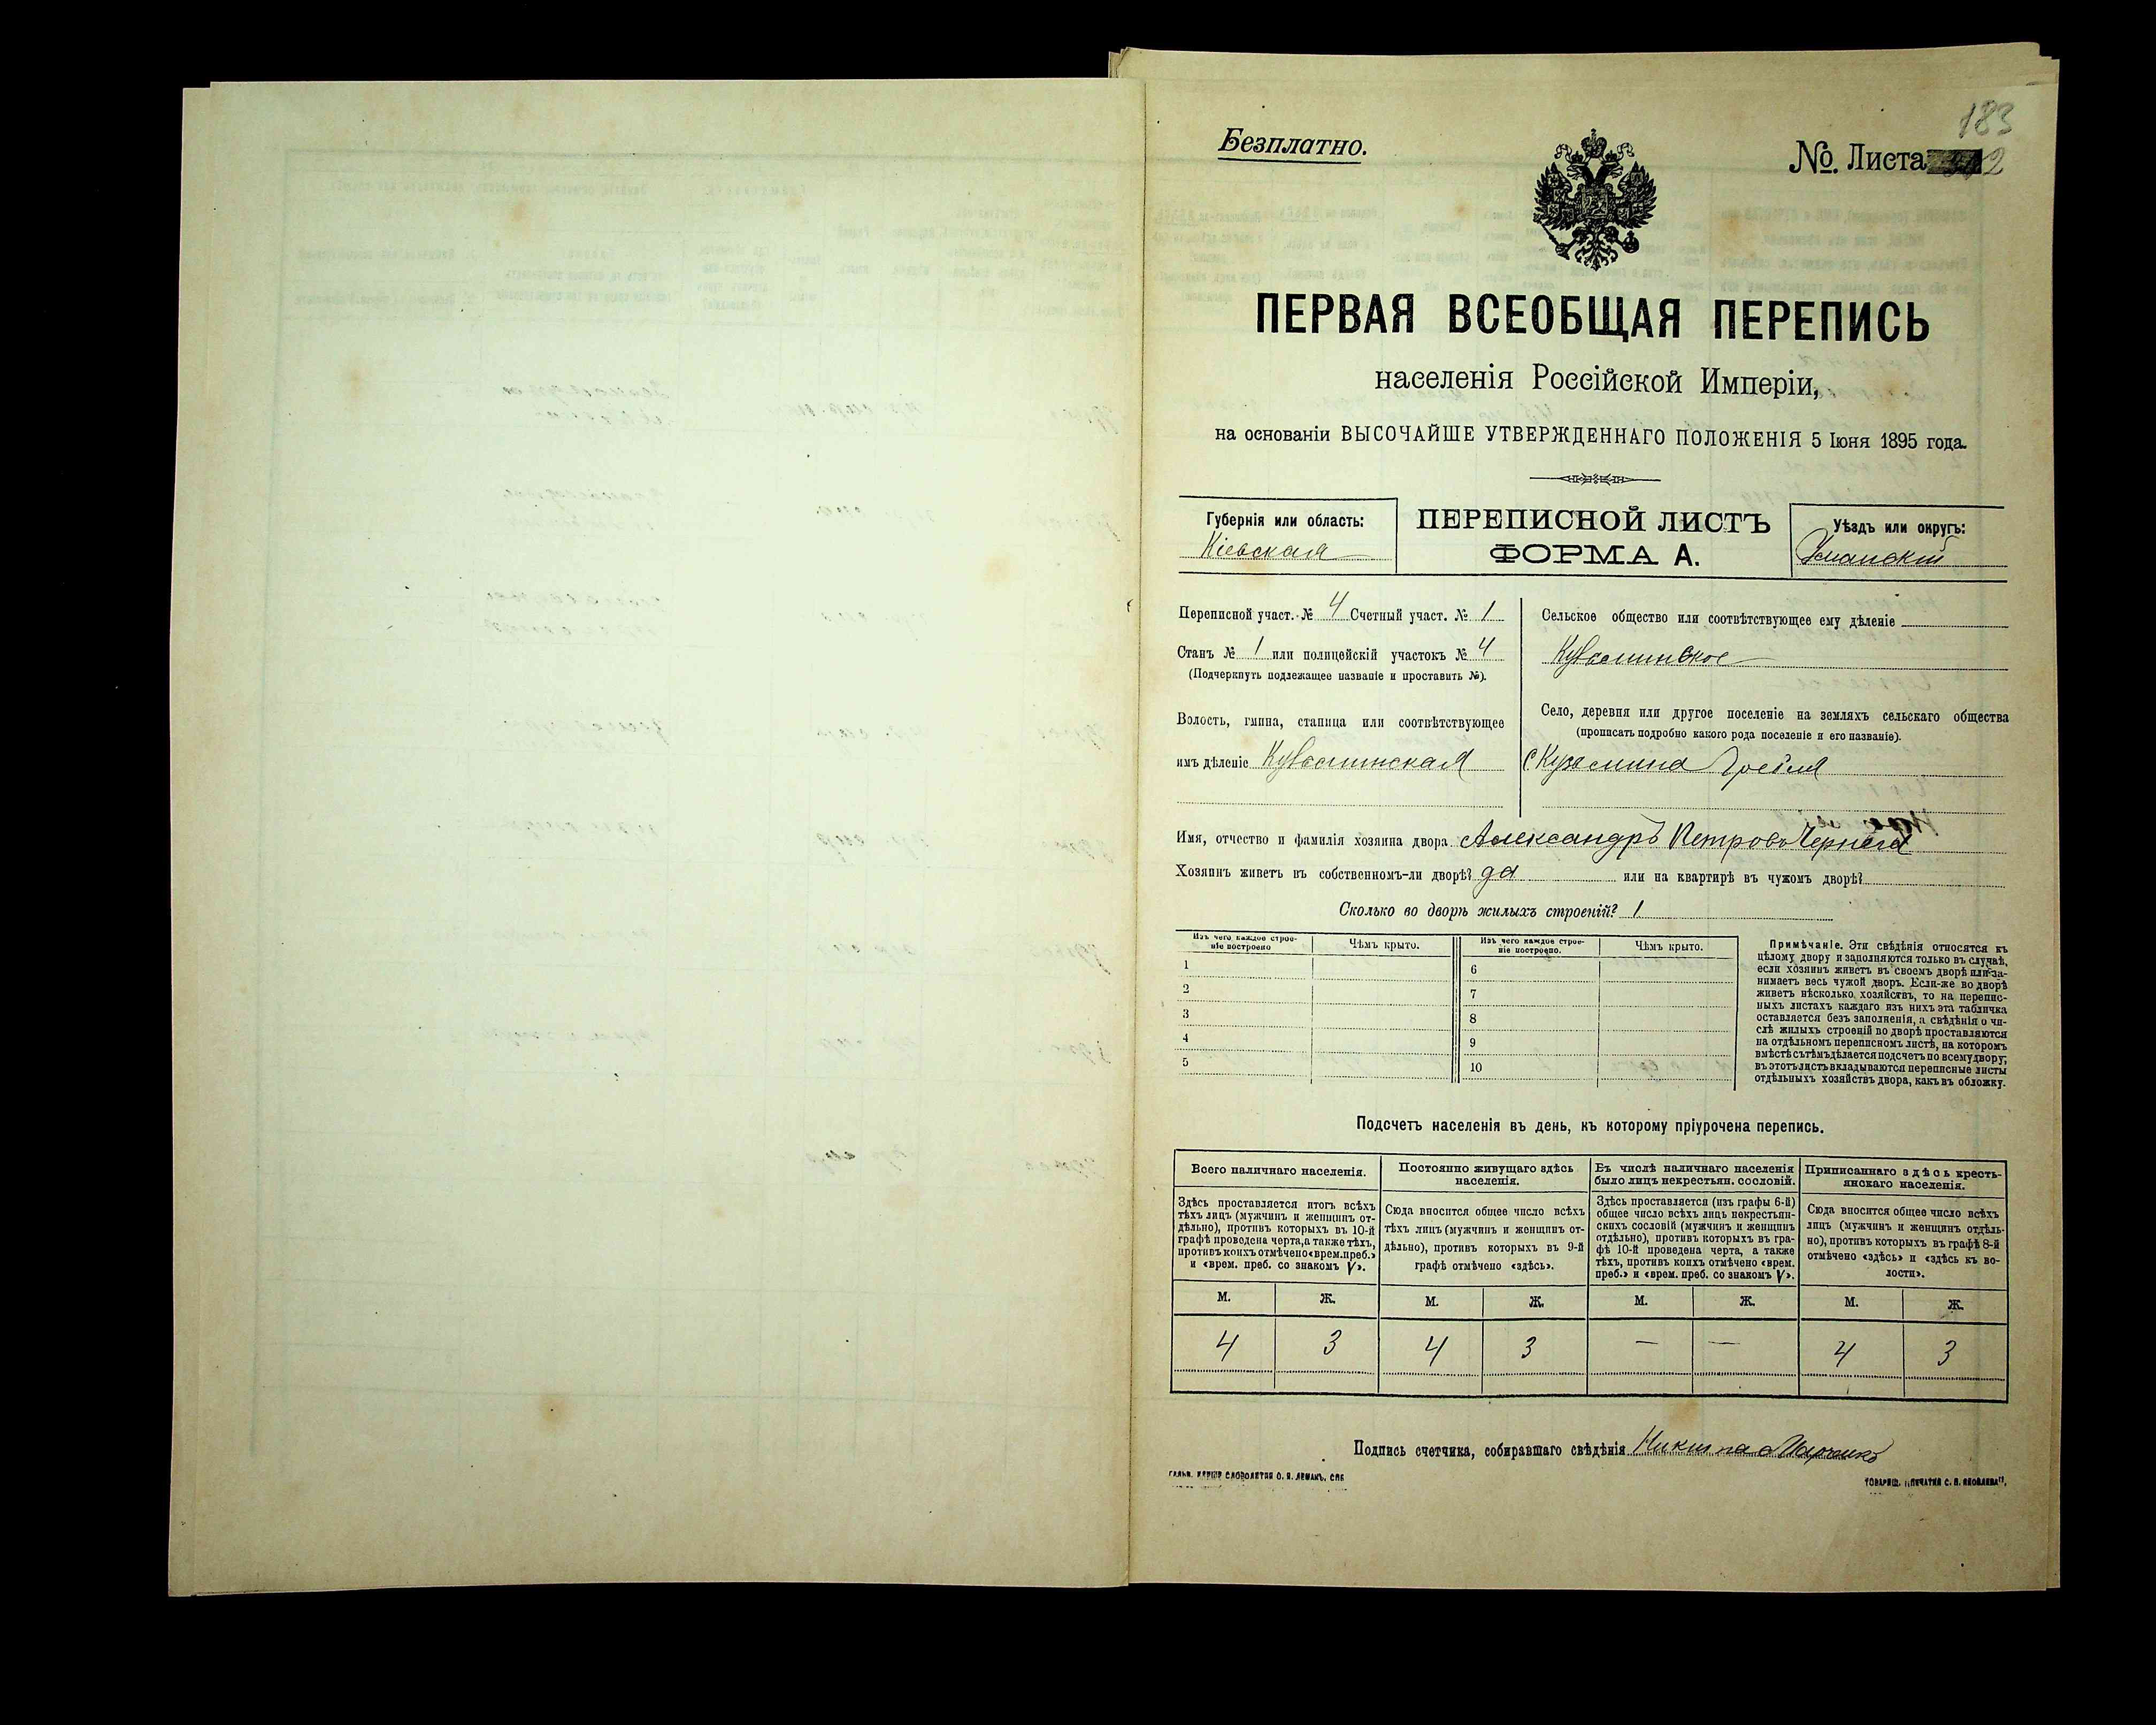 183
Безплатно.
№ Листа 2
ПЕРВАЯ ВСЕОБЩАЯ ПЕРЕПИСЬ
населенія Россійской Имперіи,
на основаніи ВЫСОЧАЙШЕ УТВЕРЖДЕННАГО ПОЛОЖЕНІЯ 5 Іюня 1895 года.
Губернія или область:
Кіевская
ПЕРЕПИСНОЙ ЛИСТЪ
ФОРМА А.
Уѣздъ или округъ:
Уманскій
Переписной участ. № 4 Счетный участ. № 1
Станъ № 1 или полицейскій участокъ № 4
(Подчеркнуть подлежащее названіе и проставить №).
Волость, гмина, станица или соотвѣтствующее
имъ дѣленіе Кузьминская
Сельское общество или соотвѣтствующее ему дѣленіе
Кузьминское
Село, деревня или другое поселеніе на земляхъ сельскаго общества
(прописать подробно какого рода поселеніе и его названіе).
с. Кузьмина Гребля
Имя, отчество и фамилія хозяина двора Александръ Петровъ Чернега
Хозяинъ живетъ въ собственномъ-ли дворѣ? да или на квартирѣ въ чужомъ дворѣ?
Сколько во дворѣ жилыхъ строеній? 1
Изъ чего каждое строе-
ніе построено
Чѣмъ крыто.
Изъ чего каждое строе-
ніе построено.
Чѣмъ крыто.
1
2
3
4
5
6
7
8
9
10
Примѣчаніе. Эти свѣдѣнія относятся къ
цѣлому двору и заполняются только въ случаѣ,
если хозяинъ живетъ въ своемъ дворѣ или за-
нимаетъ весь чужой дворъ. Если-же во дворѣ
живетъ нѣсколько хозяйствъ, то на перепис-
ныхъ листахъ каждаго изъ нихъ эта табличка
оставляется безъ заполненія, а свѣдѣнія о чи-
слѣ жилыхъ строеній во дворѣ проставляются
на отдѣльномъ переписномъ листѣ, на которомъ
вмѣстѣ съ тѣмъ дѣлается подсчетъ по всему двору;
въ этотъ листъ вкладываются переписные листы
отдѣльныхъ хозяйствъ двора, какъ въ обложку.
Подсчетъ населенія въ день, къ которому пріурочена перепись.
Всего наличнаго населенія.
Здѣсь проставляется итогъ всѣхъ
тѣхъ лицъ (мужчинъ и женщинъ от-
дѣльно), противъ которыхъ въ 10-й
графѣ проведена черта, а также тѣхъ,
противъ коихъ отмѣчено «врем. преб.»
и «врем. преб. со знакомъ V».
Постоянно живущаго здѣсь
населенія.
Сюда вносится общее число всѣхъ
тѣхъ лицъ (мужчинъ и женщинъ от-
дѣльно), противъ которыхъ въ 9-й
графѣ отмѣчено «здѣсь».
Въ числѣ наличнаго населенія
было лицъ некрестьян. сословій.
Здѣсь проставляется (изъ графы 6-й)
общее число всѣхъ лицъ некрестьян-
скихъ сословій (мужчинъ и женщинъ
отдѣльно), противъ которыхъ въ гра-
фѣ 10-й проведена черта, а также
тѣхъ, противъ коихъ отмѣчено «врем.
преб.» и «врем. преб. со знакомъ V».
Приписаннаго здѣсь кресть-
янскаго населенія.
Сюда вносится общее число всѣхъ
лицъ (мужчинъ и женщинъ отдѣль-
но), противъ которыхъ въ графѣ 8-й
отмѣчено «здѣсь» и «здѣсь къ во-
лости».
М. Ж. М. Ж. М. Ж. М. Ж.
4 3 4 3 — — 4 3
Подпись счетчика, собиравшаго свѣдѣнія Никита
СЛОВОЛИТНЯ О. И. ЛЕМАНЪ, СПБ
ТОВАРИЩ. „ПЕЧАТНЯ С. П. ЯКОВЛЕВА“.